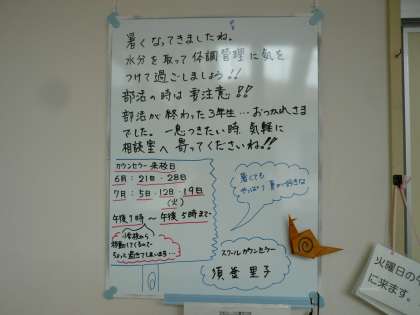 暑くなってきましたね。
水分を取って体調管理に気を
つけて過ごしましょう!!
部活の時は要注意!!
部活が終わった3年生…おつかれさま
でした。一息つきたい時、気軽に
相談室へ寄ってくださいね!!
カウンセラー来校日
6月:21日・28日
7月:5日・12日・19日
(火)
午後1時〜午後5時まで
小学校から
移動してくるので
ちょっと遅れてしまいます…
暑くても
やっぱり夏が好きな
スクールカウンセラー
須釜里子
火曜日の午
に来ます